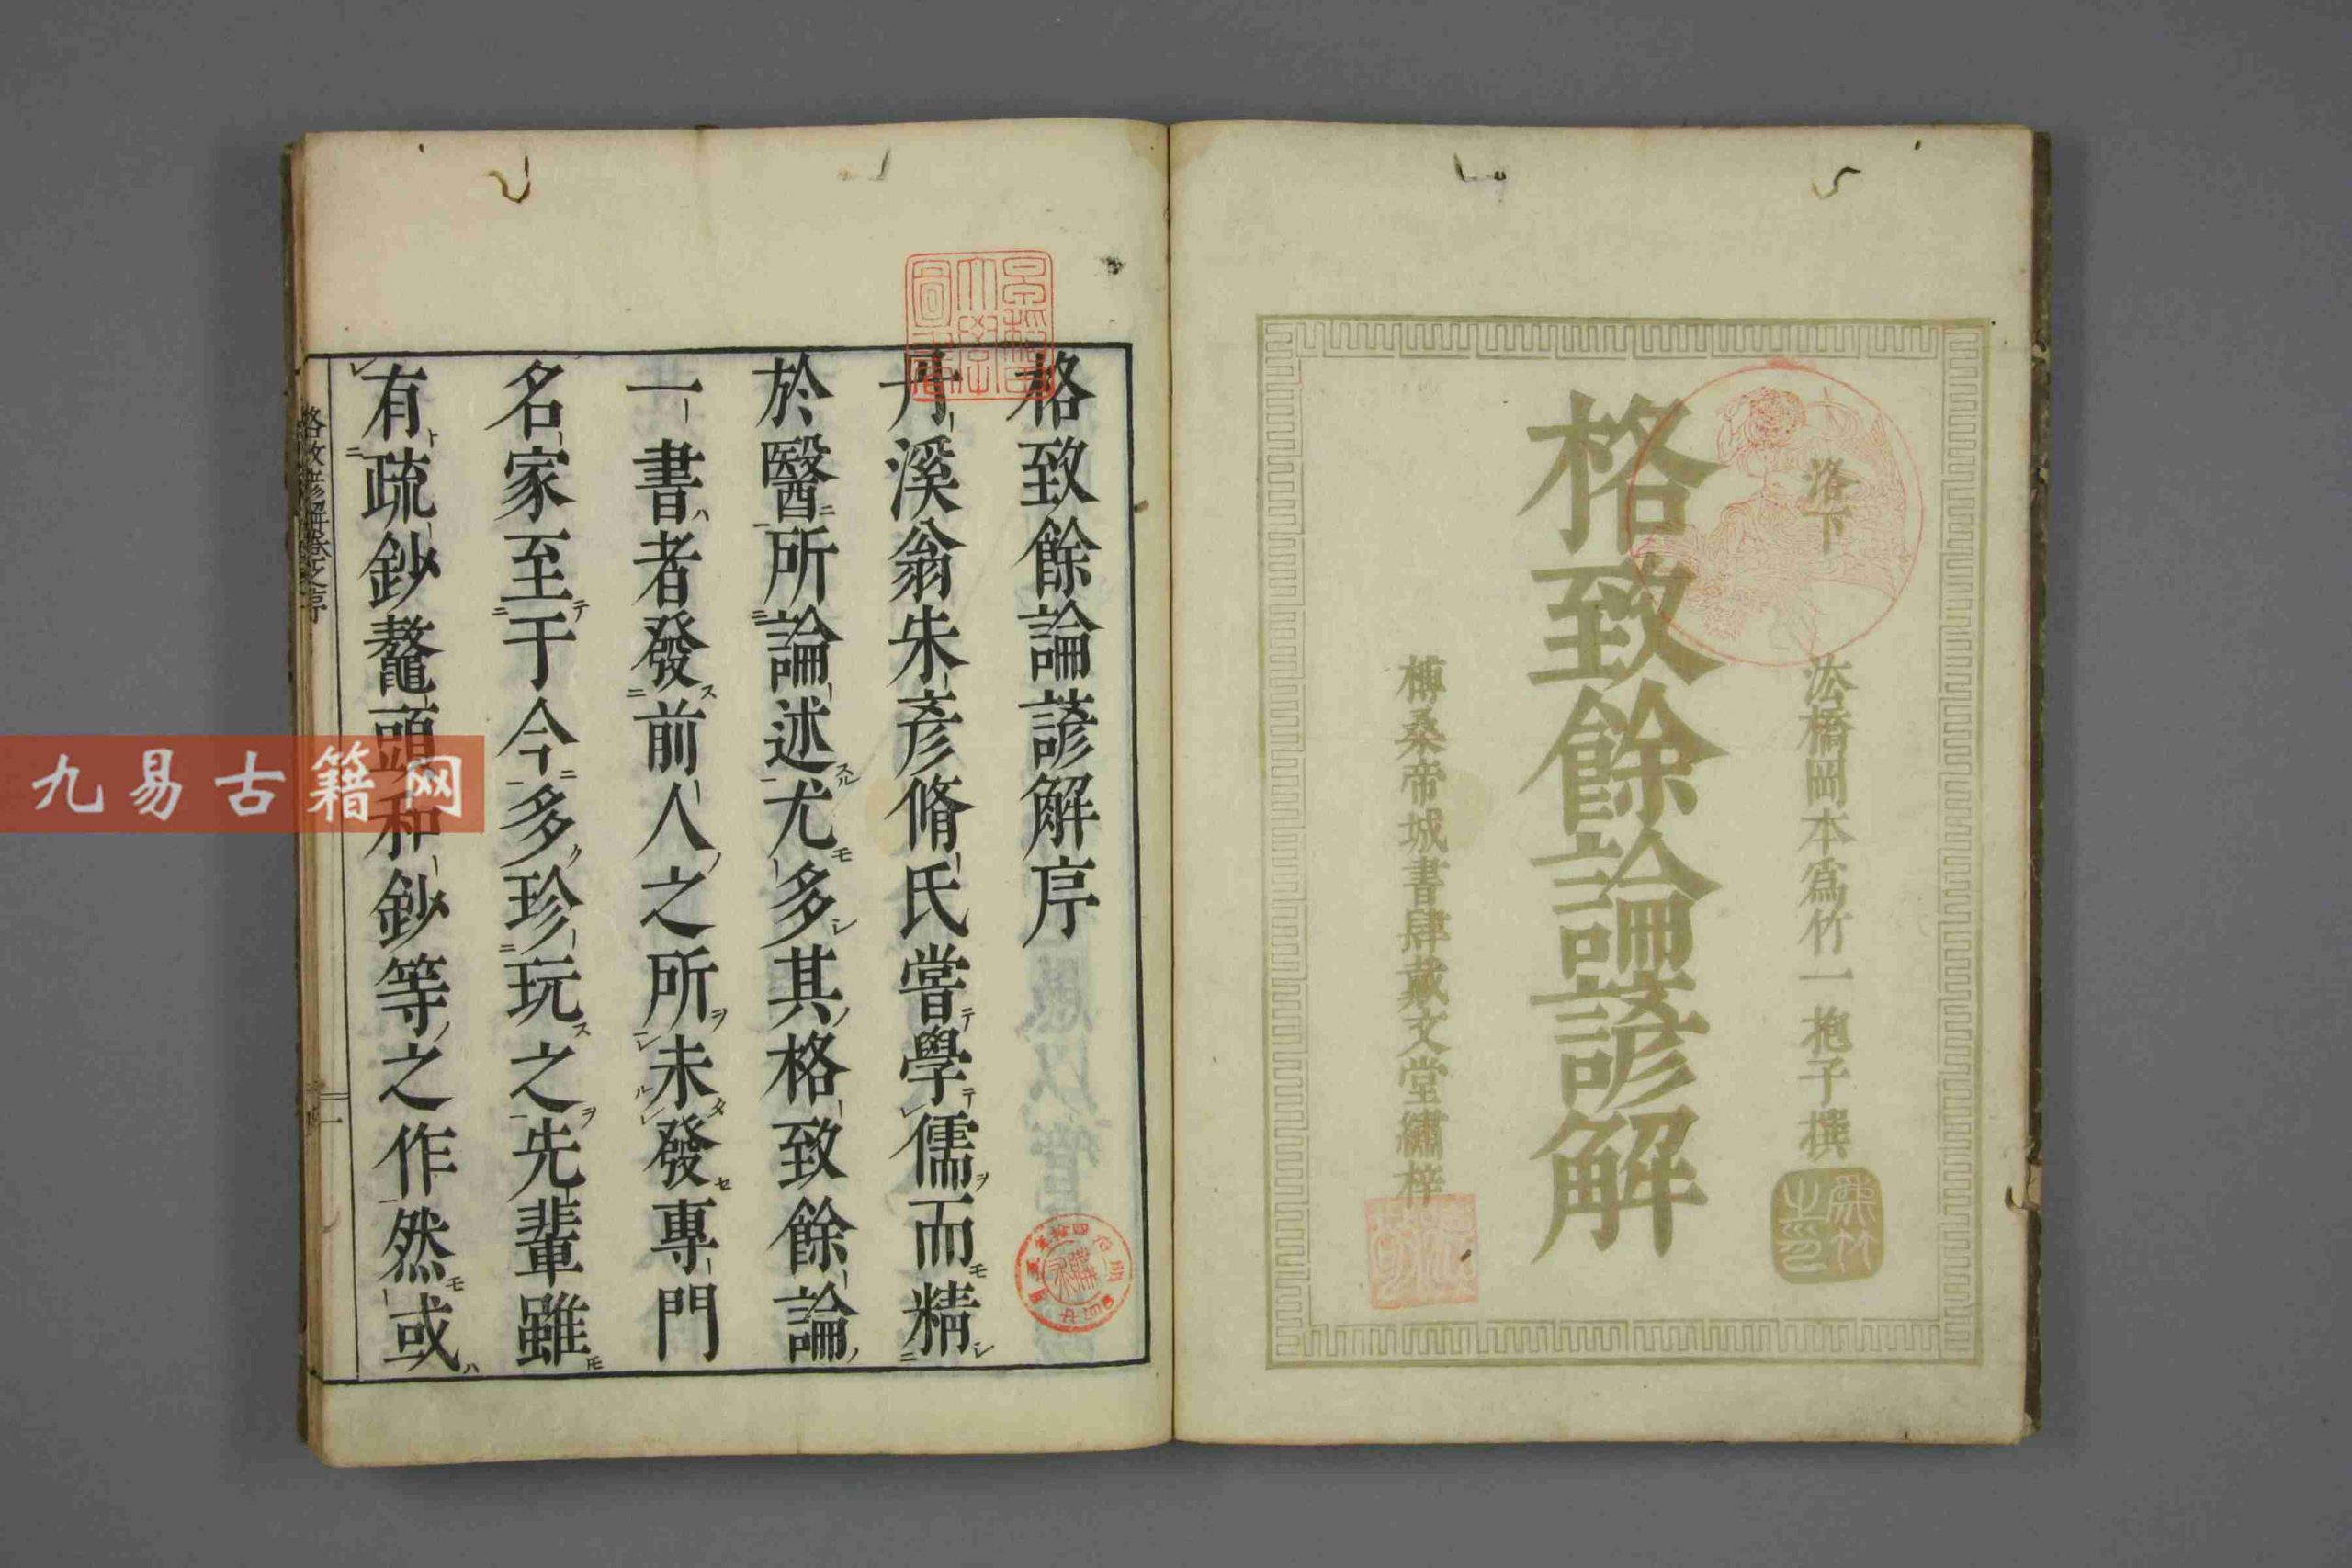 洛下
岡本爲竹一抱子撰
格致餘論諺解
榑桑帝城書肆戴文堂繡梓
格致餘論諺解序
丹溪翁朱彥脩氏嘗學儒而精
於醫所論述尤多其格致餘論
一書者發前人之所未發專門
名家至于今多珍玩之先輩雖
有疏鈔鼇頭和鈔等之作然或
九易古籍网